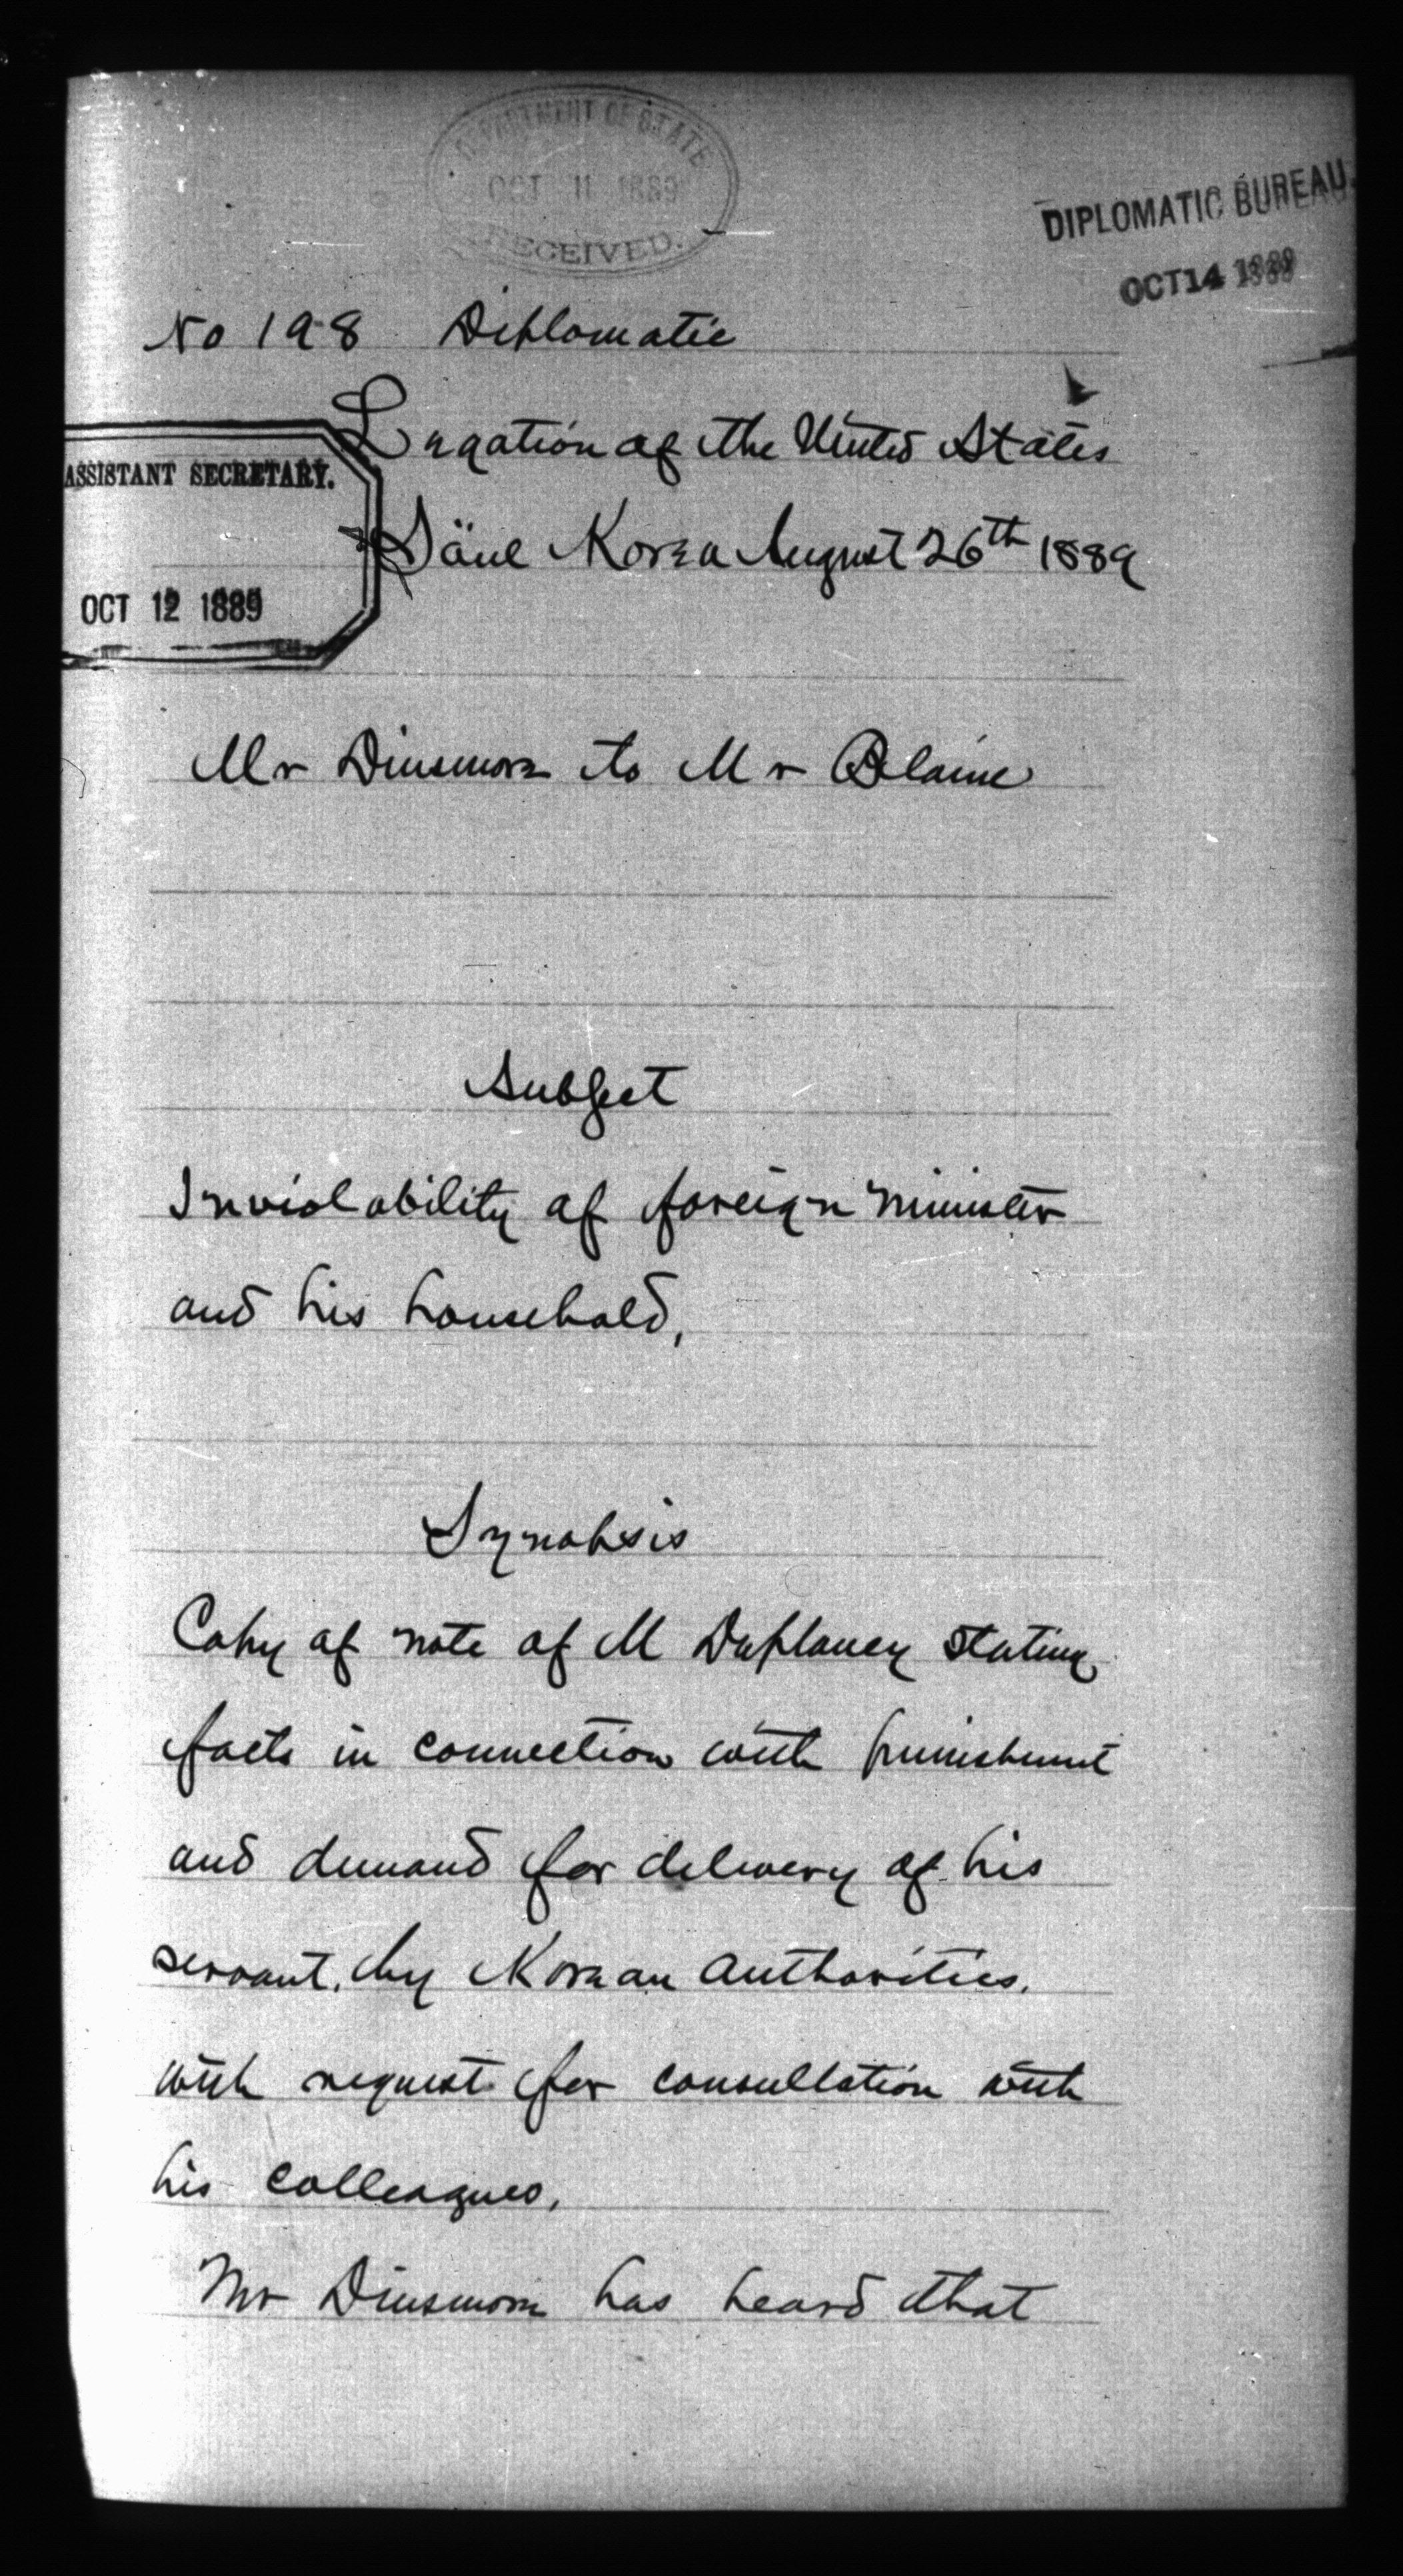 DEPARTMENT OF STATE
OCT 11 1889
RECEIVED.
DIPLOMATIC BUREAU.
OCT 14 1889
No 198 Diplomatic
Legation of the United States
ASSISTANT SECRETARY.
Söul Korea August 26th 1889
OCT 12 1889
Mr Dinsmore to Mr Blaine
Subject
Inviolability of foreign minister
and his household,
Synopsis
Copy of note of M Deplancy stating
facts in connection with punishment
and demand for delivery of his
servant, by Korean Authorities,
with request for consultation with
his colleagues,
Mr Dinsmore has heard that